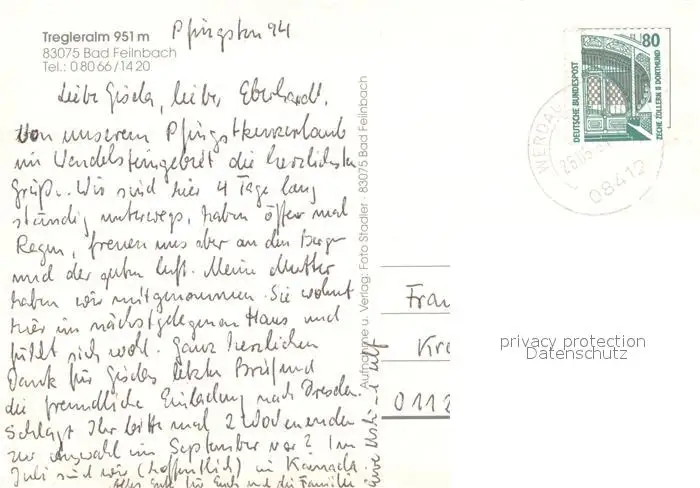 Tregleralm 951 m
83075 Bad Feilnbach
Tel.: 0 80 66 / 14 20
Pfingsten 94
Liebe Gisela, lieber Eberhardt,
Von unserem Pfingstkurzurlaub
im Wendelsteingebiet die herzlichsten
Grüße. Wir sind hier 4 Tage lang
ständig unterwegs, haben öfter mal
Regen, freuen uns aber an den Bergen
und der guten Luft. Meine Mutter
haben wir mitgenommen. Sie wohnt
hier im nächstgelegenen Haus und
fühlt sich wohl. Ganz herzlichen
Dank für Giselas letzten Brief und
die freundliche Einladung nach Dresden.
Schlagt Ihr bitte mal 2 Wochenenden
zur Auswahl im September vor? Im
Juli sind wir (hoffentlich) in Kanada.
Alles Gute für Euch und die Familie
Eure und Ulf
Aufnahme u. Verlag: Foto Stadler · 83075 Bad Feilnbach
80
DEUTSCHE BUNDESPOST
ZECHE ZOLLERN II DORTMUND
WERDAU
08412
Frau
Kre
0112
privacy protection
Datenschutz